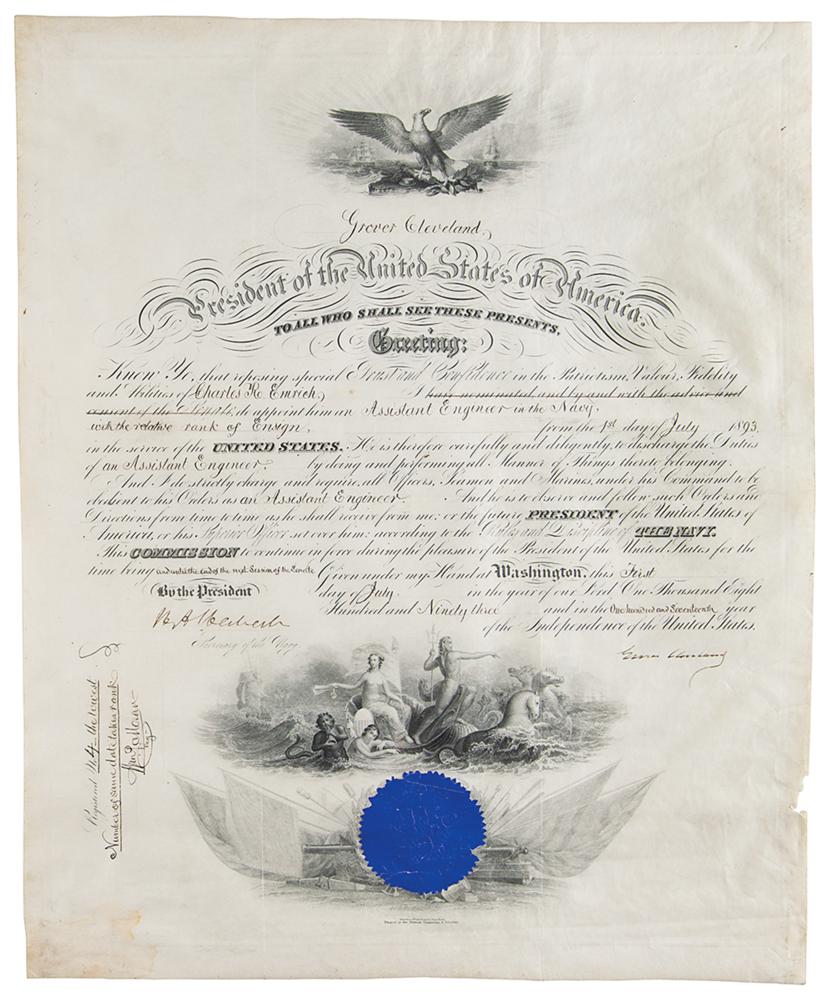 Grover Cleveland,
President of the United States of America.
TO ALL WHO SHALL SEE THESE PRESENTS,
Greeting:
Know Ye, that reposing special Trust and Confidence in the Patriotism, Valour, Fidelity
and Abilities of Charles R. Emrich, I have nominated, and by and with the advice and
consent of the Senate, do appoint him an Assistant Engineer in the Navy,
with the relative rank of Ensign, from the 1st day of July 1893,
in the service of the UNITED STATES. He is therefore carefully and diligently, to discharge the Duties
of an Assistant Engineer, by doing and performing all Manner of Things thereto belonging.
And I do strictly charge and require, all Officers, Seamen and Marines, under his Command to be
obedient to his Orders as an Assistant Engineer And he is to observe and follow such Orders and
Directions from time to time as he shall receive from me, or the future PRESIDENT of the United States of
America, or his Superior Officer set over him, according to the Rules and Discipline of THE NAVY.
This COMMISSION to continue in force during the pleasure of the President of the United States for the
time being and until the end of the next Session of the Senate
Given under my Hand at Washington, this First
By the President
day of July in the year of our Lord One Thousand Eight
Hundred and Ninety three and in the One hundred and Seventeenth year
of the Independence of the United States.
Secretary of the Navy.
Grover Cleveland
Registered No. 4 the lowest
Number of same date takes rank